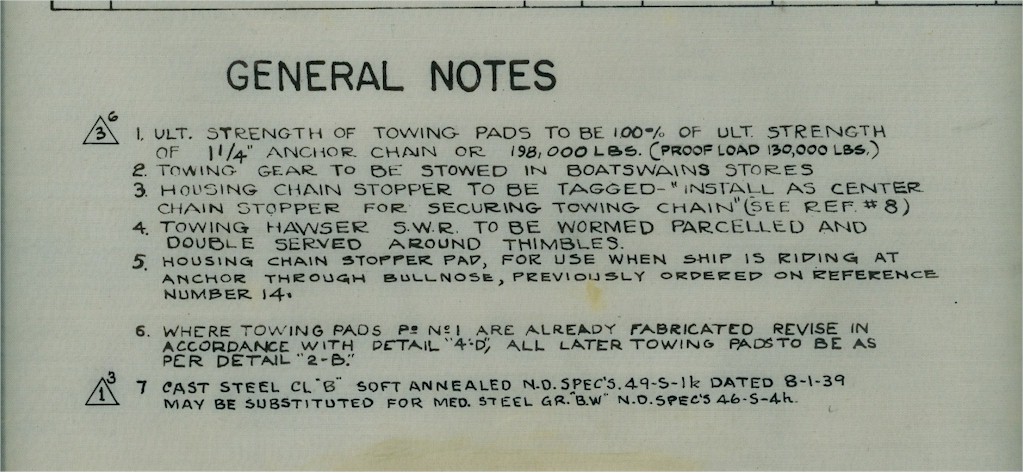 GENERAL NOTES
3 6 1. ULT. STRENGTH OF TOWING PADS TO BE 100% OF ULT. STRENGTH
OF 1 1/4" ANCHOR CHAIN OR 198,000 LBS. (PROOF LOAD 130,000 LBS.)
2. TOWING GEAR TO BE STOWED IN BOATSWAINS STORES
3. HOUSING CHAIN STOPPER TO BE TAGGED-"INSTALL AS CENTER
CHAIN STOPPER FOR SECURING TOWING CHAIN" (SEE REF. #8)
4. TOWING HAWSER S.W.R. TO BE WORMED PARCELLED AND
DOUBLE SERVED AROUND THIMBLES.
5. HOUSING CHAIN STOPPER PAD, FOR USE WHEN SHIP IS RIDING AT
ANCHOR THROUGH BULLNOSE, PREVIOUSLY ORDERED ON REFERENCE
NUMBER 14.
6. WHERE TOWING PADS Pc No 1 ARE ALREADY FABRICATED REVISE IN
ACCORDANCE WITH DETAIL "4-D", ALL LATER TOWING PADS TO BE AS
PER DETAIL "2-B."
1 3 7 CAST STEEL CL "B" SOFT ANNEALED N.D. SPEC'S. 49-S-1k DATED 8-1-39
MAY BE SUBSTITUTED FOR MED. STEEL GR. "B.W" N.D. SPEC'S 46-S-4h.